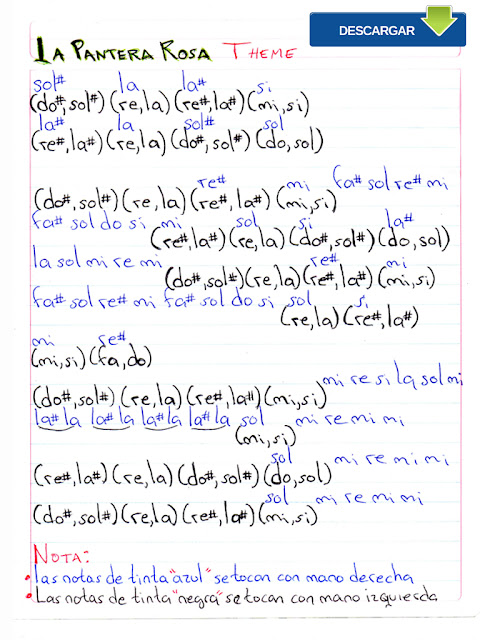 DESCARGAR
LA PANTERA ROSA THEME
sol# la la# si
(do#, sol#) (re, la) (re#, la#) (mi, si)
la# la sol# sol
(re#, la#) (re, la) (do#, sol#) (do, sol)
re# mi fa# sol re# mi
(do#, sol#) (re, la) (re#, la#) (mi, si)
fa# sol do si mi sol si la#
(re#, la#) (re, la) (do#, sol#) (do, sol)
la sol mi re mi re# mi
(do#, sol#) (re, la) (re#, la#) (mi, si)
fa# sol re# mi fa# sol do si sol si
(re, la) (re#, la#)
mi re#
(mi, si) (fa, do)
(do#, sol#) (re, la) (re#, la#) (mi, si) mi re si la sol mi
la# la la# la la# la la# la sol mi re mi mi
(mi, si)
sol mi re mi mi
(re#, la#) (re, la) (do#, sol#) (do, sol)
sol mi re mi mi
(do#, sol#) (re, la) (re#, la#) (mi, si)
NOTA:
• las notas de tinta "azul" se tocan con mano derecha
• Las notas de tinta "negra" se tocan con mano izquierda